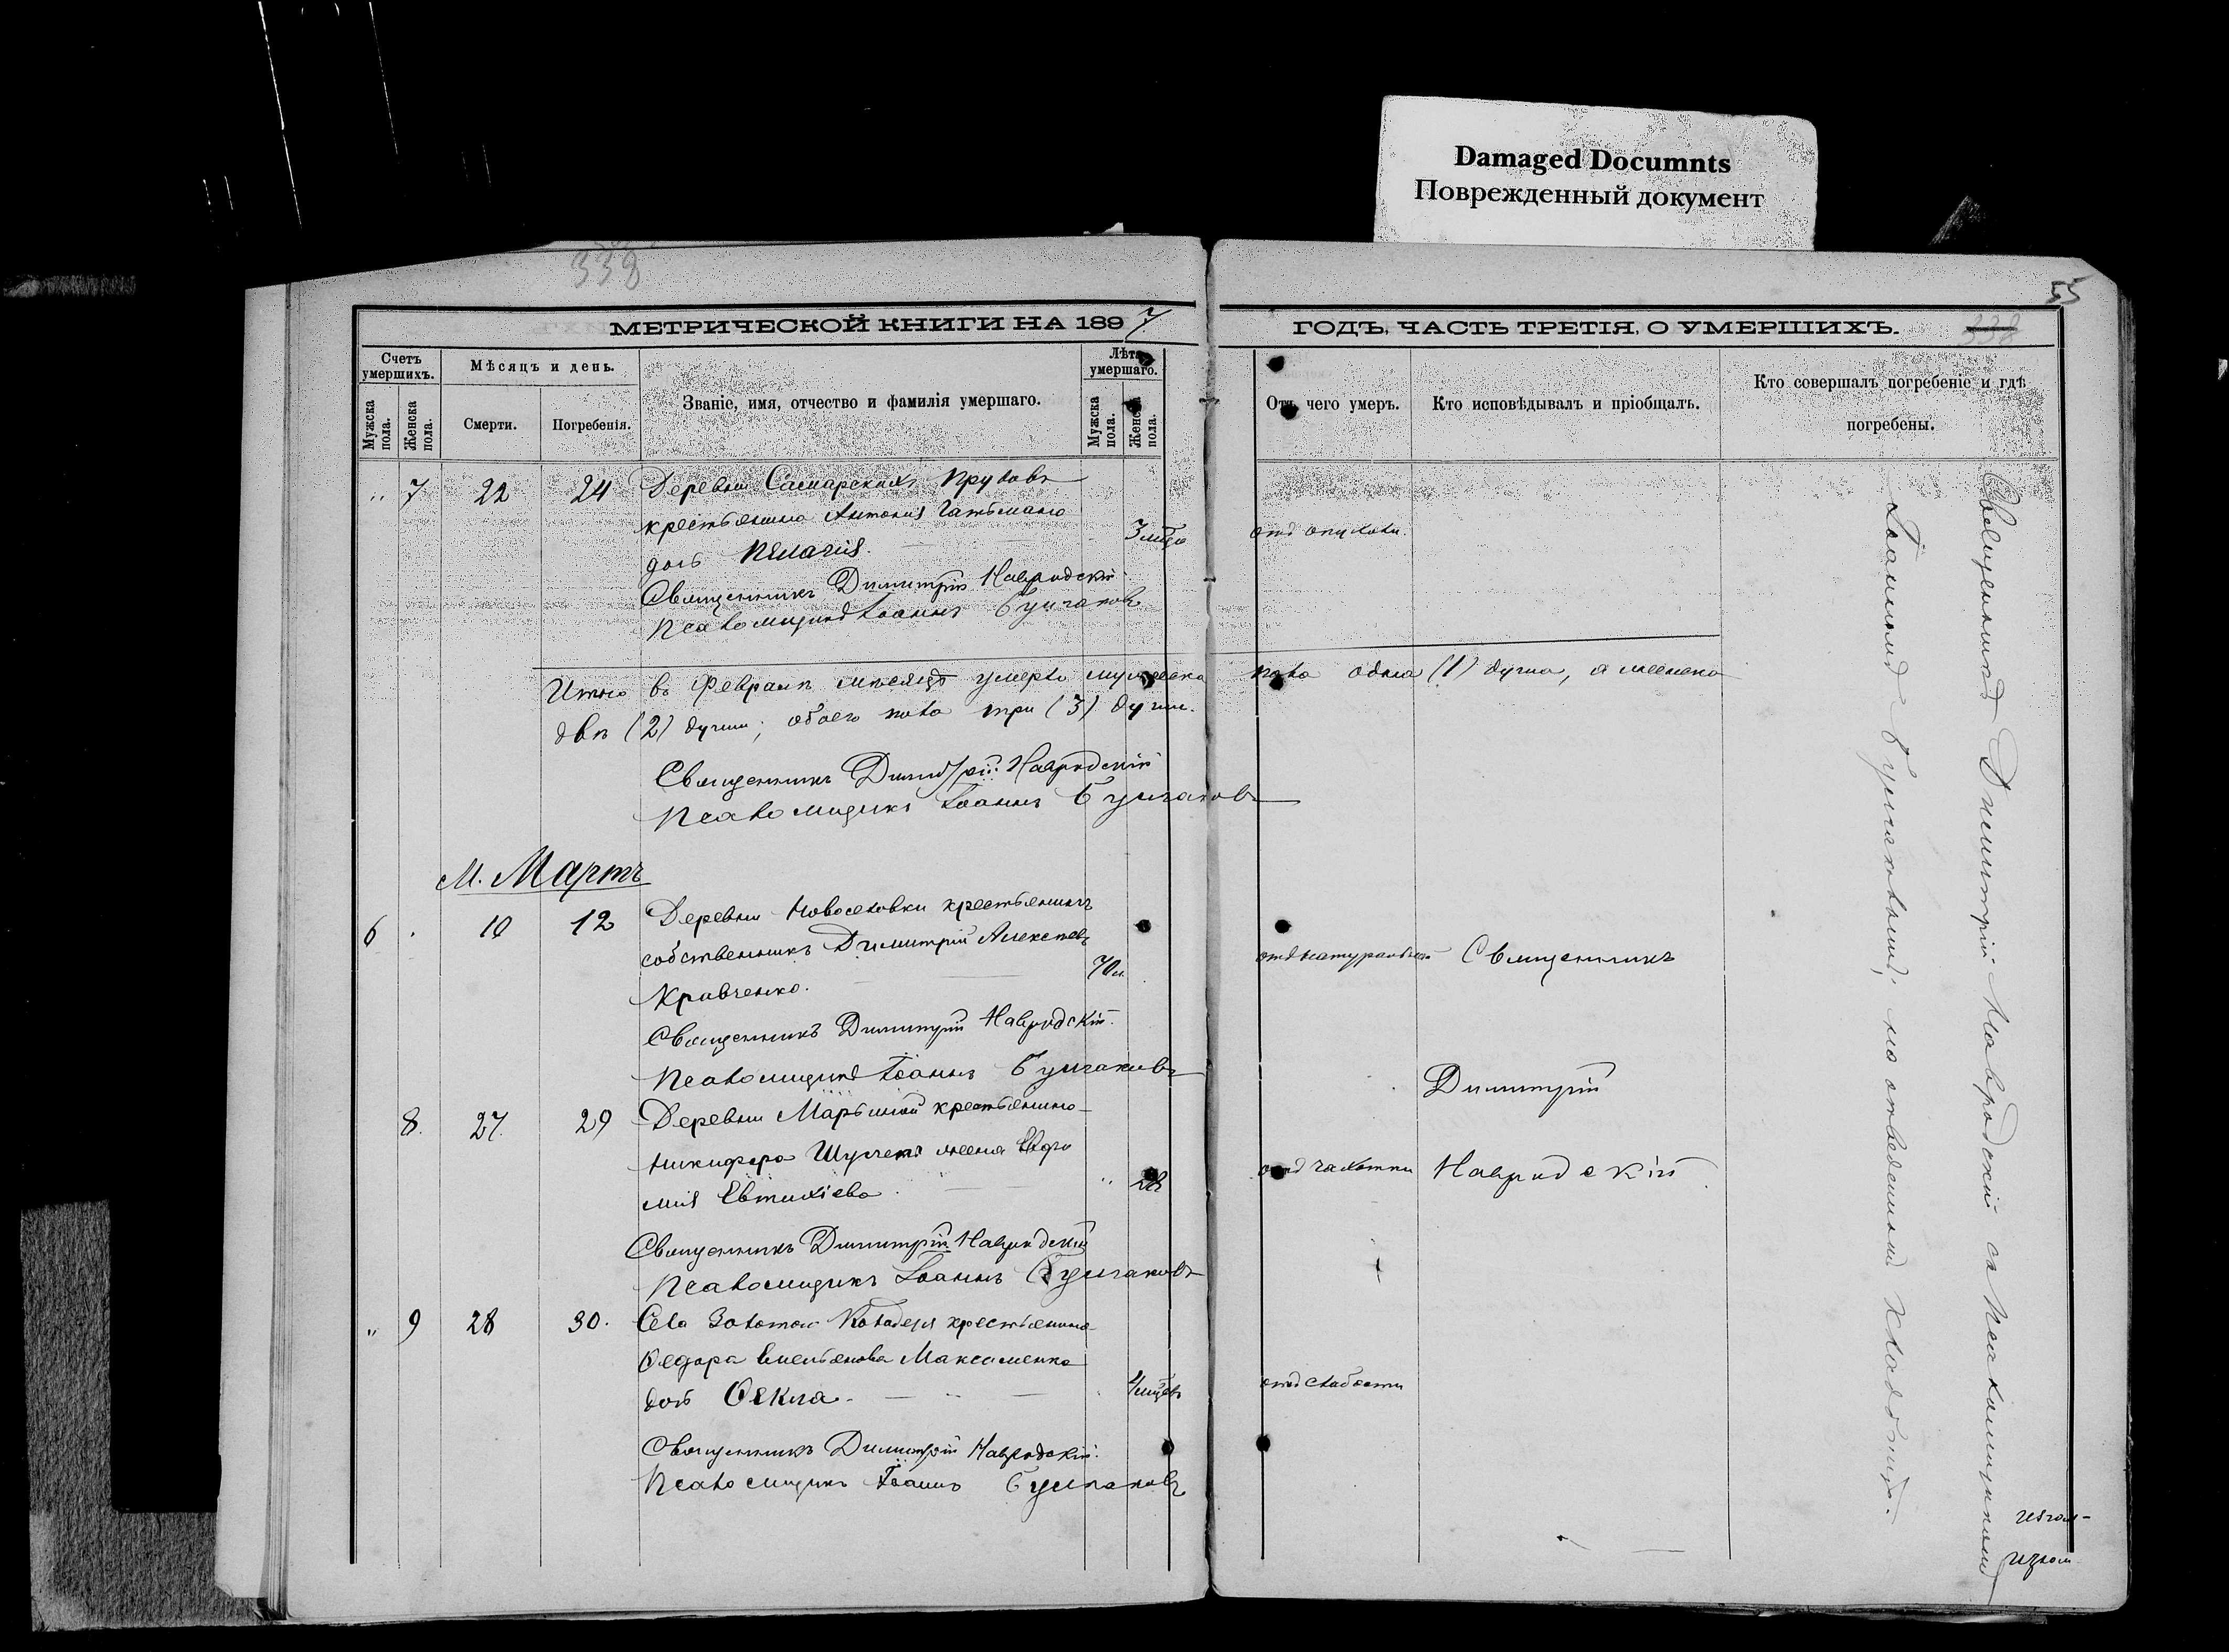 Damaged Documnts
Поврежденный документ
338
55
МЕТРИЧЕСКОЙ КНИГИ НА 1897
ГОДЪ, ЧАСТЬ ТРЕТІЯ, О УМЕРШИХЪ.
338
Счетъ умершихъ.
Мѣсяцъ и день.
Званіе, имя, отчество и фамилія умершаго.
Лѣта умершаго.
Отъ чего умеръ.
Кто исповѣдывалъ и пріобщалъ.
Кто совершалъ погребеніе и гдѣ
погребены.
Мужска пола.
Женска пола.
Смерти.
Погребенія.
Мужска пола.
Женска пола.
" 7 22 24 Деревни Самарскихъ Прудовъ
крестьянина Антонія Гатьмана
дочь Пелагія. 3 мѣс. отъ опухоли.
Священникъ Димитрій Навродскій
Псаломщикъ Іоаннъ Булгаковъ
Итого въ Февралѣ мѣсяцѣ умерло мужеска пола одна (1) душа, а женска
двѣ (2) души; обоего пола три (3) души.
Священникъ Димитрій Навродскій
Псаломщикъ Іоаннъ Булгаковъ
М. Мартъ
6 10 12 Деревни Новоселовки крестьянинъ
собственникъ Димитрій Алексѣевъ
Кравченко. 70 л. отъ натуральной Священникъ
Священникъ Димитрій Навродскій.
Псаломщикъ Іоаннъ Булгаковъ
Димитрій
8. 27. 29 Деревни Марьиной крестьянина
Никифора жена Евфи
мія Евтихіева " 28 отъ чахотки Навродскій
Священникъ Димитрій Навродскій
Псаломщикъ Іоаннъ Булгаковъ
" 9 28 30. Села Золотой Колодезь крестьянина
Ѳедора Емельянова Максименко
дочь Ѳекла. 4 мѣс. отъ слабости
Священникъ Димитрій Навродскій.
Псаломщикъ Іоаннъ Булгаковъ
Священникъ Димитрій Навродскій съ Псаломщикомъ
Іоанномъ Булгаковымъ, на отведенномъ кладбищѣ.